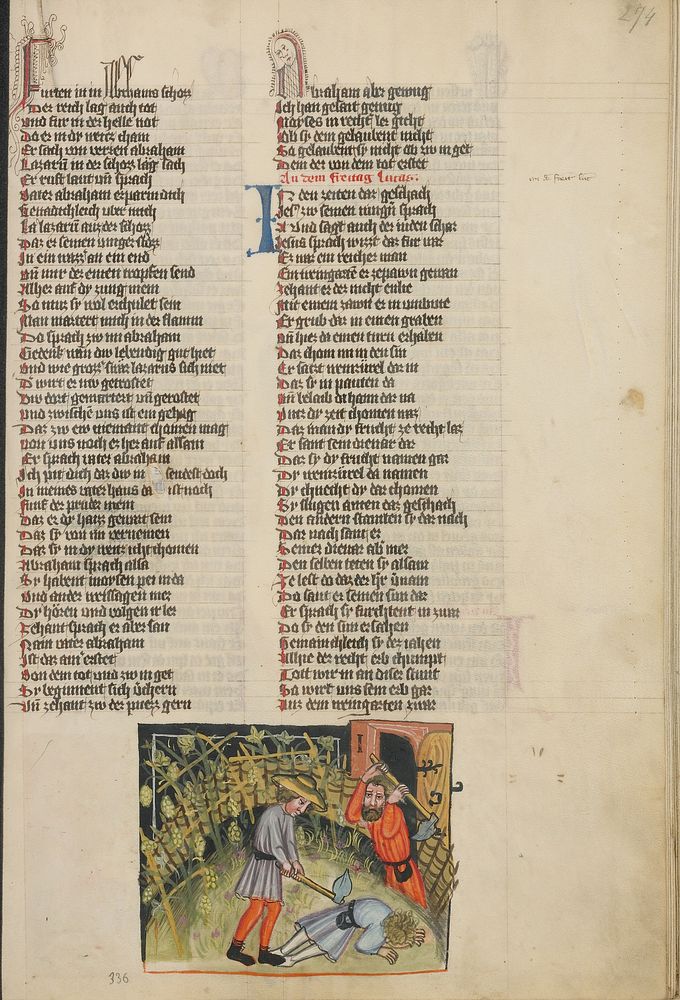 274
Furten in in Abrahams schoz
Der reich lag auch tot
Vnd fur in der helle not
Do er in dy weicz cham
Er sach von verren abraham
Lazarũ in der schoz lag sach
Er ruft laut vñ sprach
Vater abraham erparm dich
Genadichleich vber mich
La lazarũ auz der schozz
Daz er seinen vinger stozz
In ein wazz̾ an ein end
Vñ mir der einen tropfen send
Alher auf dy zung mein
So mus sy wol erchulet sein
Man martert mich in der flamm
Do sprach zw im abraham
Gedenk wañ dw lebendig gut hiet
Vnd wie grozz̾ sich lazarus niet
D̾ wirt er nw getrostet
Dw dort gemartert vñ gerostet
Vnd zwischẽ vns ist ein gehag
Daz zw ew niemant chomen mag
von vns noch er her auf allsam
Er sprach vater abraham
Ich pit dich daz dw in sendest doch
In meines vater haus da ist noch
Funf der pruder mein
Daz er dy haizz gewar sein
Daz sy von im vernemen
Daz sy in dy weicz icht chomen
Abraham sprach alsa
Sy habent moysen pei in da
Vnd ander weissagen mer
Dy hören vnd volgen ir ler
Zehant sprach er aber san
Nain vater abraham
Ist daz ain̾ erstet
Von dem tot vnd zw in get
Sy beginnent sich
Vñ zehant zw der puezz gern
Abraham aber genug
Ich han gesant genug
Moyses in recht ler gicht
Ob sy dem gelaubent nicht
So gelaubent sy nicht ob zw in get
Dem der von dem tot erstet
An dem freitag Lucas:
In den zeiten daz geschach
Jesus zw seinen iungñ sprach
Vnd sagt auch der iuden schar
Jesus sprach wizzt daz fur war
Ez waz ein reicher man
Ein weingartẽ er zepawn gewan
Zehant er der nicht enlie
Mit einem zawn er in vmbvie
Er grub dar in einen graben
vñ hiez da einen turn erhaben
Daz chom im in den sin
Er satzt weinrebel dar in
Daz sy in pauten da
Vñ belaib da haim dar na
Vncz dy zeit chomen waz
Daz man dy frucht ze recht laz
Er sant sein dienær dar
Daz sy dy frucht namen gar
Dy weinrebel da namen
Dy chnecht dy dar chomen
Sy slugen ainen daz geschach
Den andern stainten sy dar nach
Dar nach sant er
Seiner diener ab̾ mer
Den selben teten sy alsam
Ze lest do daz der h̾r vernam
Do sant er seinen sun dar
Er sprach sy furchtent in zwar
Do sy den sun ersahen
Gemainchleich sy des iahen
Alhie der recht erb chumpt
Tott wir in an diser stunt
So wirt vns sein erb gar
Vnz dem weingarten zwar
336